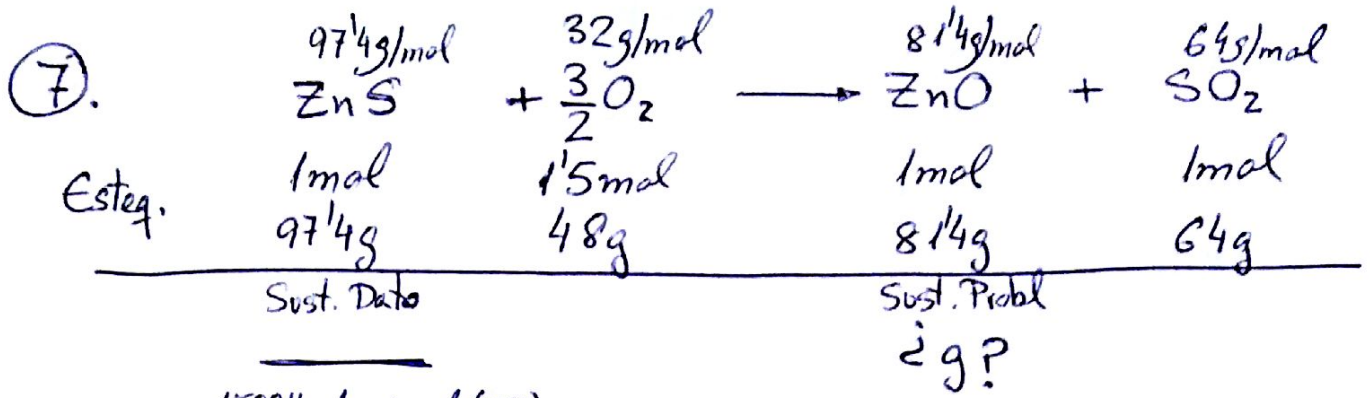 7.
97'4g/mol 32g/mol 81'4g/mol 64g/mol
ZnS + 3/2 O₂ → ZnO + SO₂
Esteq. 1mol 1'5mol 1mol 1mol
97'4g 48g 81'4g 64g
Sust. Dato Sust. Probl
¿g?